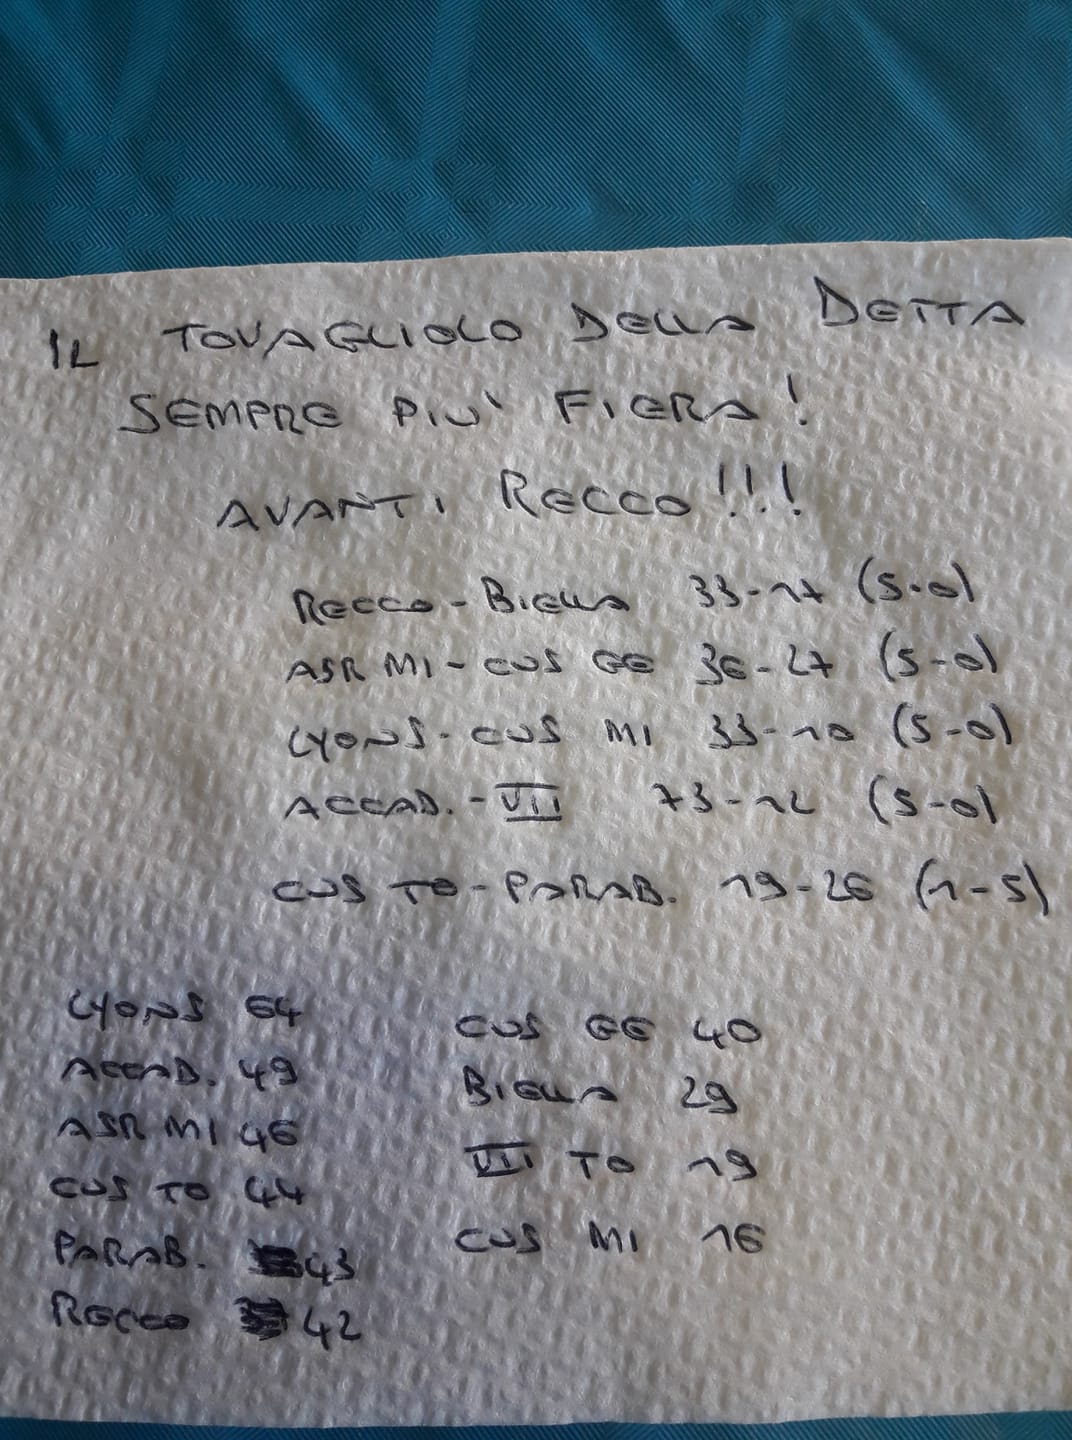 IL TOVAGLIOLO DELLA DETTA
SEMPRE PIU' FIERA!
AVANTI RECCO!!!
RECCO - BIELLA 33-17 (5-0)
ASR MI - CUS GE 36-27 (5-0)
LYONS - CUS MI 33-10 (5-0)
ACCAD. - VII 73-12 (5-0)
CUS TO - PARAB. 19-26 (1-5)
LYONS 64
ACCAD. 49
ASR MI 46
CUS TO 44
PARAB. 43
RECCO 42
CUS GE 40
BIELLA 29
VII TO 19
CUS MI 16